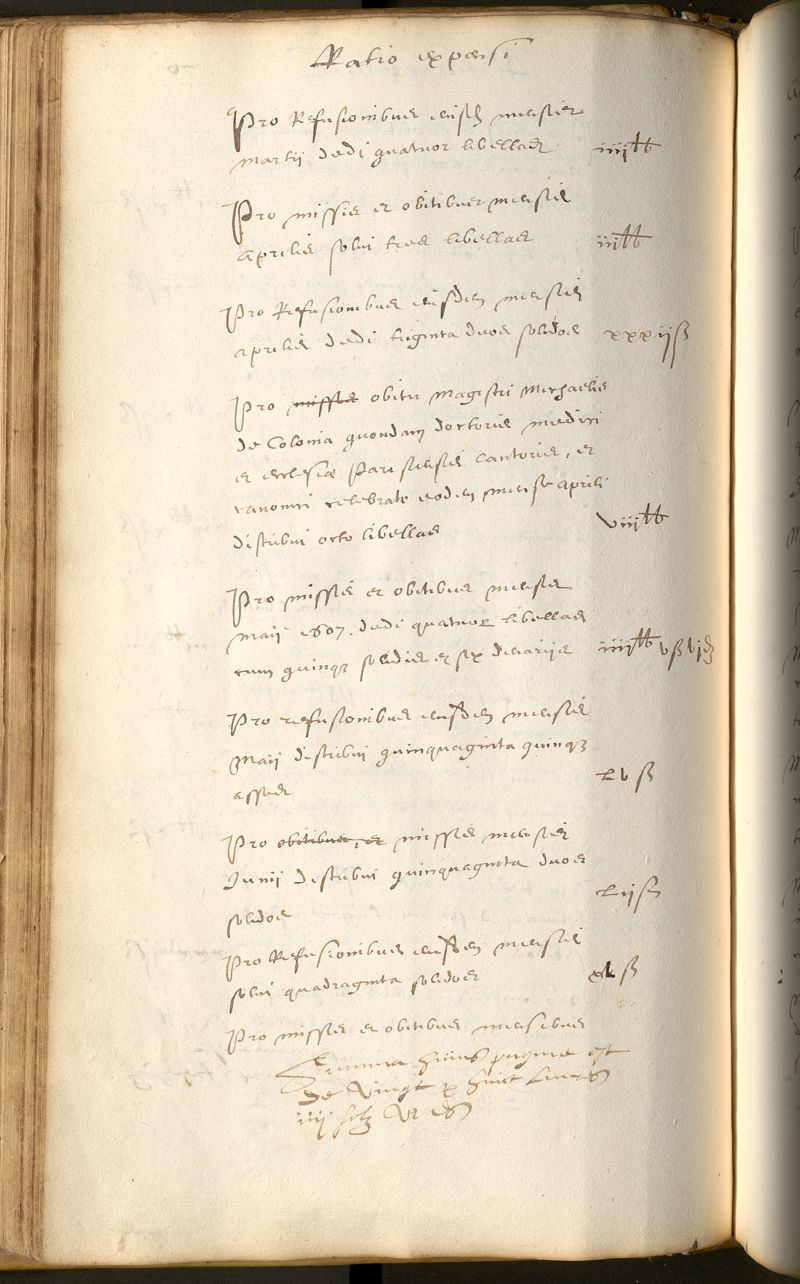 Ratio expensi
Pro Refusionibus eiusd mensis
martij dedi quatuor libellas iiij tt
Pro missis et obitibus mensis
aprilis solui tres libellas iij tt
Pro Refusionibus eiusdem mensis
aprilis dedi triginta duos solidos xxxij ß
Pro missis obitu magistri Michaelis
de Colonia quondam doctoris medici
et ecclesiæ Parisiensis cantoris, et
canonici celebrato eodem mense aprili
distribui octo libellas viij tt
Pro missis et obitibus mensis
maij 1607. dedi quatuor libellas
cum quinq solidis et sex denarijs iiij tt v ß vj d
Pro refusionibus eiusdem mensis
Maij distribui quinquaginta quinq
asses Lv ß
Pro obitibus, et missis mensis
Junij distribui quinquaginta duos
solidos Lij ß
Pro Refusionibus eiusdem mensis
solui quadraginta solidos xL ß
Pro missis et obitibus mensibus
Summa huius pagine est
de vingt huict livres
iiij solz vi d